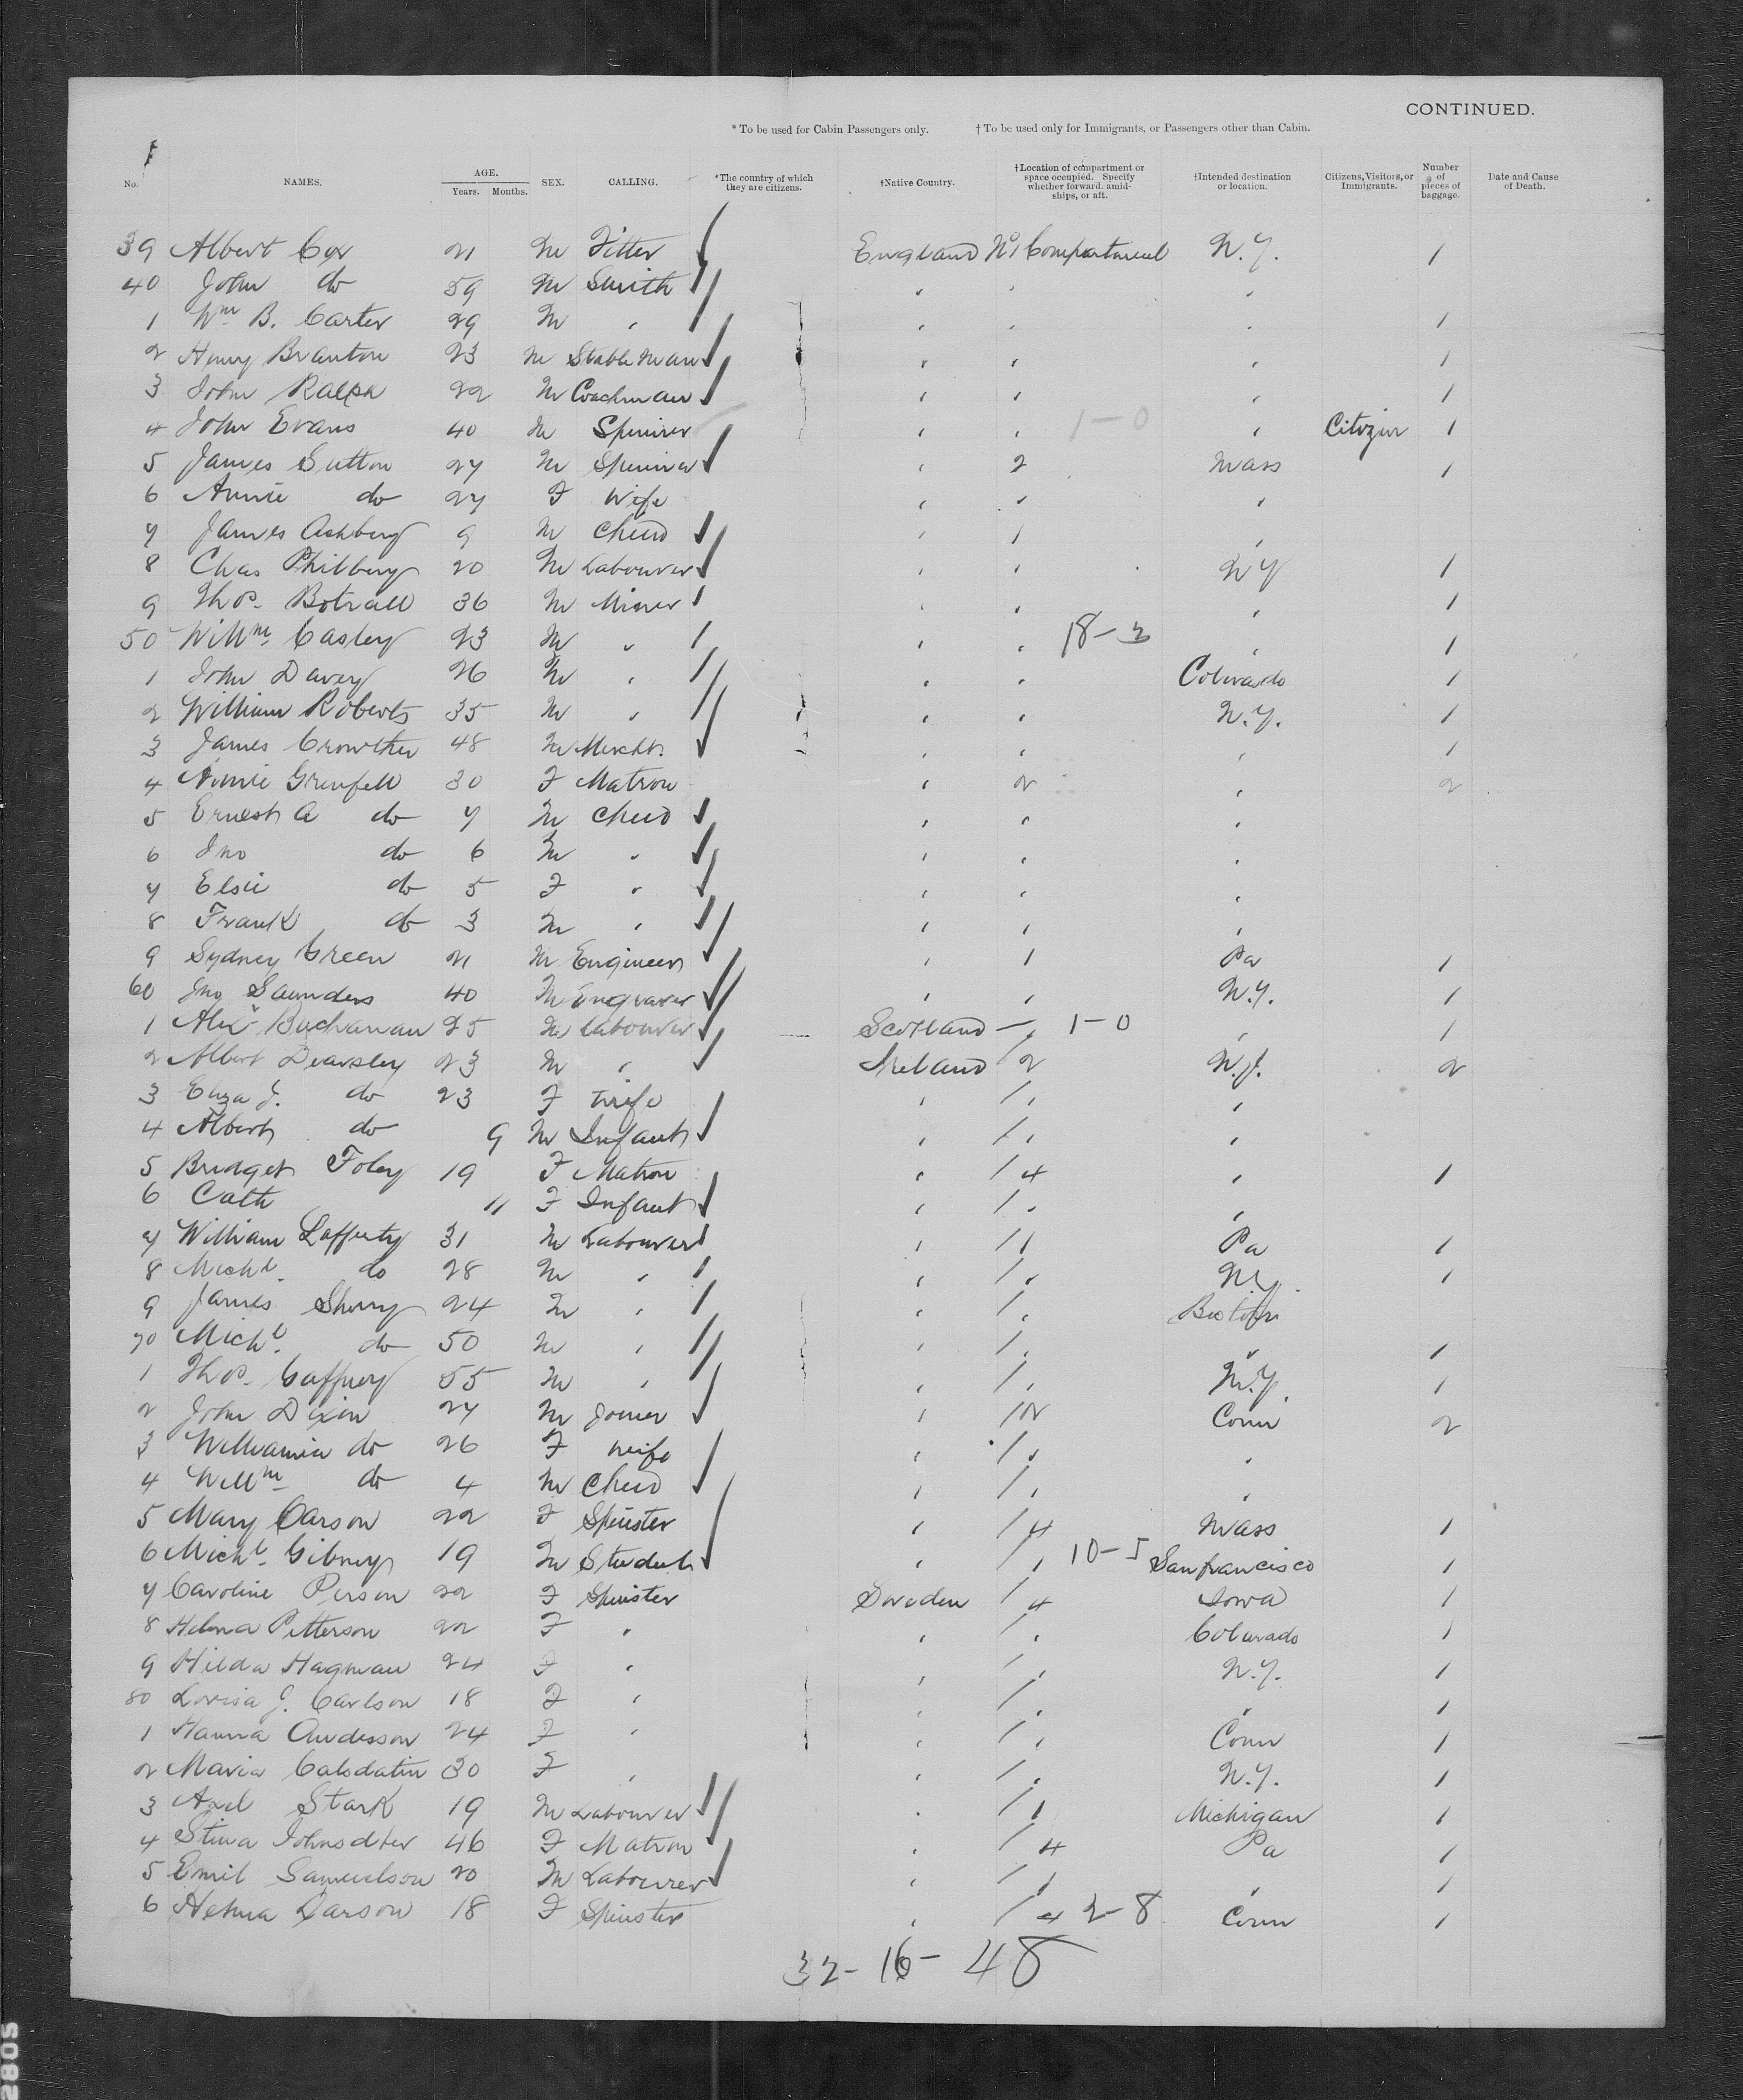 CONTINUED.
* To be used for Cabin Passengers only. † To be used only for Immigrants, or Passengers other than Cabin.
No. NAMES. AGE. Years. Months. SEX. CALLING. *The country of which they are citizens. †Native Country. †Location of compartment or space occupied. Specify whether forward, amidships, or aft. †Intended destination or location. Citizens, Visitors, or Immigrants. Number of pieces of baggage. Date and Cause of Death.
39 Albert Cox 21 M Fitter England No 1 Compartment N.Y. 1
40 John do 59 M Smith " " "
1 Wm B. Carter 29 M " " " " 1
2 Henry Branton 23 M Stableman " " " 1
3 John Ralph 22 M Coachman " " " 1
4 John Evans 40 M Spinner " " 1-0 " Citizen 1
5 James Sutton 27 M Spinner " 2 Mass 1
6 Annie do 27 F Wife " " "
7 James Ashbery 9 M Child " 1 "
8 Chas 20 M Labourer " " NY 1
9 Thos. Botrall 36 M Miner " " " 1
50 Willm. Casley 23 M " " " 18-3 " 1
1 John Davey 26 M " " " Colorado 1
2 William Roberts 35 M " " " N.Y. 1
3 James Crowther 48 M Mercht. " " " 1
4 Grenfell 30 F Matron " 2 " 2
5 Ernest A do 7 M Child " " "
6 Jno do 6 M " " " "
7 Elsie do 5 F " " " "
8 Frank do 3 M " " " "
9 Sydney Green 21 M Engineer " 1 Pa 1
60 Jno Saunders 40 M Engraver " " N.Y. 1
1 Alexr Buchanan 25 M Labourer Scotland " 1-0 " 1
2 Albert Dearsley 23 M " Ireland 2 N.J. 2
3 Eliza J. do 23 F Wife " " "
4 Albert do 9 M Infant " " "
5 Bridget Foley 19 F Matron " 4 " 1
6 Cath 11 F Infant " " "
7 William Lafferty 31 M Labourer " 1 Pa 1
8 Michl. do 28 M " " " N.Y. 1
9 James Sherry 24 M " " " Boston
70 Michl. do 50 M " " " " 1
1 Thos. Gaffney 55 M " " " N.Y. 1
2 John Dixon 27 M Joiner " 2 Conn 2
3 Williamina do 26 F Wife " " "
4 Willm do 4 M Child " " "
5 Mary Carson 22 F Spinster " 4 Mass 1
6 Michl. Gibney 19 M Student " 1 10-5 San francisco 1
7 Caroline Person 22 F Spinster Sweden 4 Iowa 1
8 Helma Petterson 22 F " " " Colorado 1
9 Hilda Hagman 24 F " " " N.Y. 1
80 Lovisa J. Carlson 18 F " " " " 1
1 Hanna Andersson 24 F " " " Conn 1
2 Maria 30 F " " " N.Y. 1
3 Axel Stark 19 M Labourer " 1 Michigan 1
4 Stina Johnsdter 46 F Matron " 4 Pa 1
5 Emil Samuelson 20 M Labourer " 1 " 1
6 18 F Spinster " 4 2-8 Conn 1
32-16-48
2805